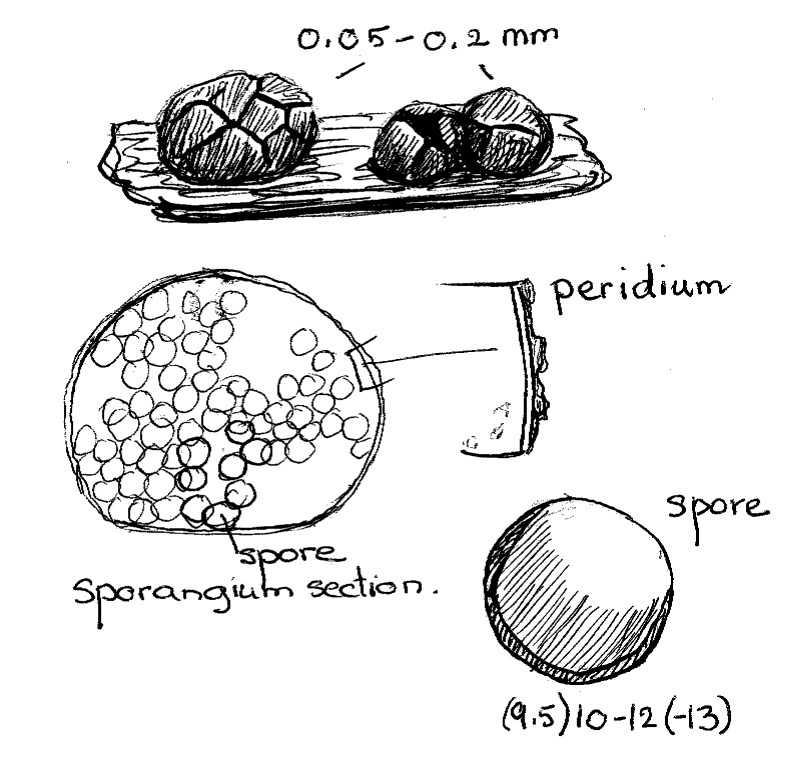 0.05-0.2 mm
peridium
spore
sporangium section.
spore
(9.5)10-12(-13)